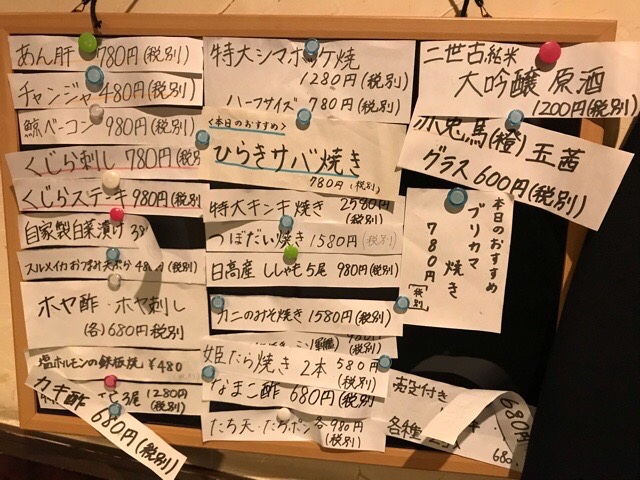 あん肝 780円(税別)
チャンジャ 480円(税別)
鯨ベーコン 980円(税別)
くじら刺し 780円(税別)
くじらステーキ 980円(税別)
自家製白菜漬け 38
スルメイカ
ホヤ酢・ホヤ刺し
(各)680円(税別)
塩ホルモンの鉄板焼 ¥480
3尾 1280円
(税別)
カキ酢 680円(税別)
特大シマホッケ焼
1280円(税別)
ハーフサイズ 780円(税別)
<本日のおすすめ>
ひらきサバ焼き
780円(税別)
特大キンキ焼き 2580円
(税別)
つぼだい焼き 1580円(税別)
日高産 ししゃも5尾 980円(税別)
カニのみそ焼き 1580円(税別)
姫だら焼き 2本 580円
(税別)
なまこ酢 680円(税別)
たち天・たちポン 各980円
(税別)
二世古 純米
大吟醸 原酒
1200円(税別)
赤兎馬(橙) 玉茜
グラス 600円(税別)
本日のおすすめ
ブリカマ焼き
780円
[税別]
殻付き
各種
680円
680